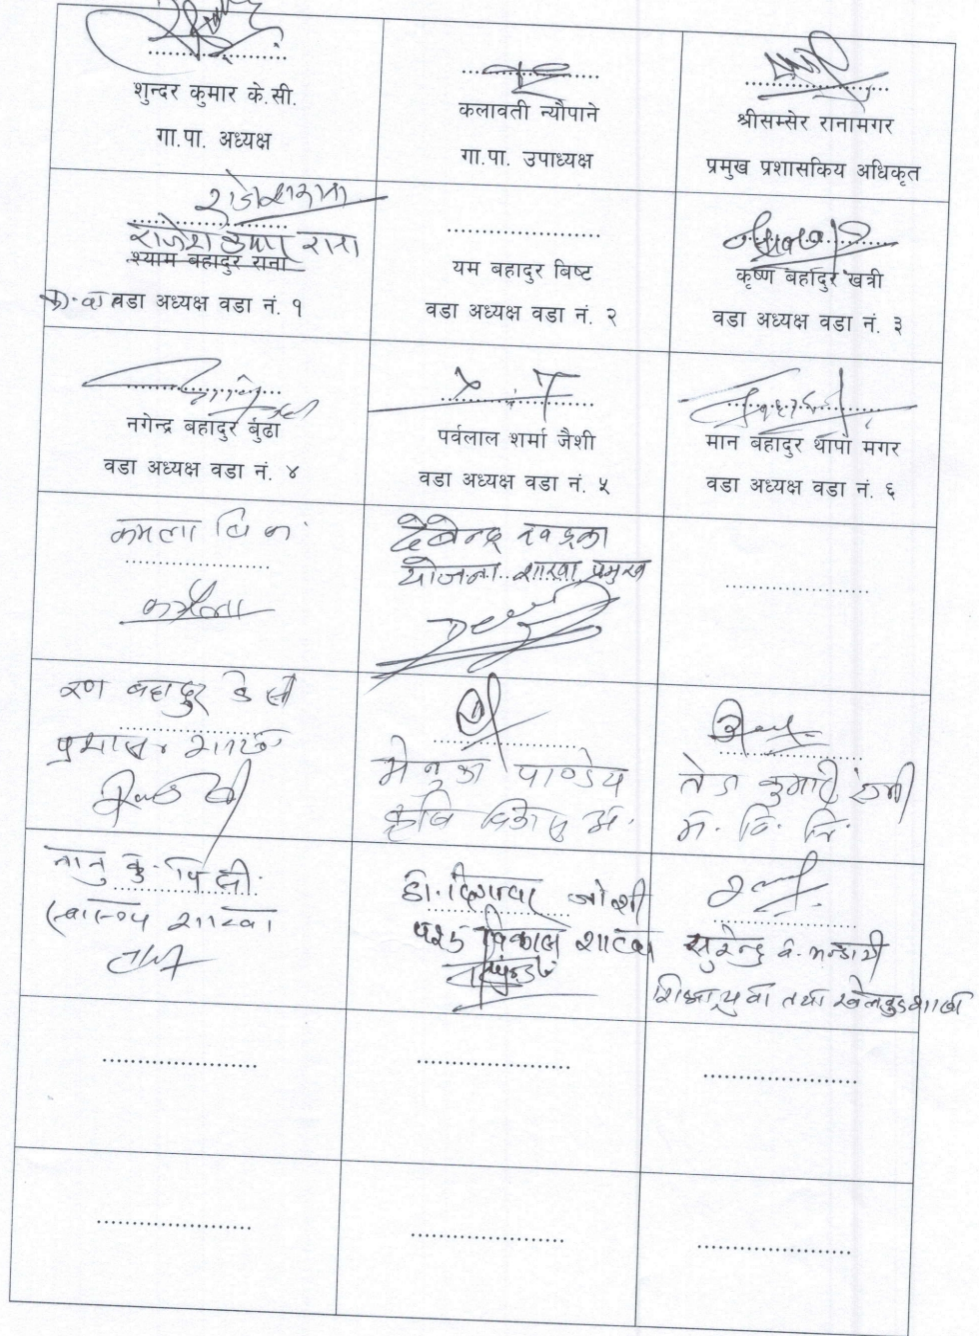 शुन्दर कुमार के.सी.
गा.पा. अध्यक्ष
कलावती न्यौपाने
गा.पा. उपाध्यक्ष
श्रीसम्सेर रानामगर
प्रमुख प्रशासकिय अधिकृत
राजेश कुमार राना
श्याम बहादुर राना
का.वा वडा अध्यक्ष वडा नं. १
यम बहादुर बिष्ट
वडा अध्यक्ष वडा नं. २
कृष्ण बहादुर खत्री
वडा अध्यक्ष वडा नं. ३
नगेन्द्र बहादुर बुढा
वडा अध्यक्ष वडा नं. ४
पर्वलाल शर्मा जैशी
वडा अध्यक्ष वडा नं. ५
मान बहादुर थापा मगर
वडा अध्यक्ष वडा नं. ६
कमला वि क.
कमला
देबेन्द्र
योजना शाखा प्रमुख
रण बहादुर के सी
प्रशासन शाखा
मेनुका पाण्डेय
कृषि विकास अ.
तेज कुमारी
म. वि. नि.
स्वास्थ्य शाखा
डा. जोशी
पशु विकास शाखा
सुरेन्द्र व. भन्डारी
शिक्षा युवा तथा खेलकुद शाखा